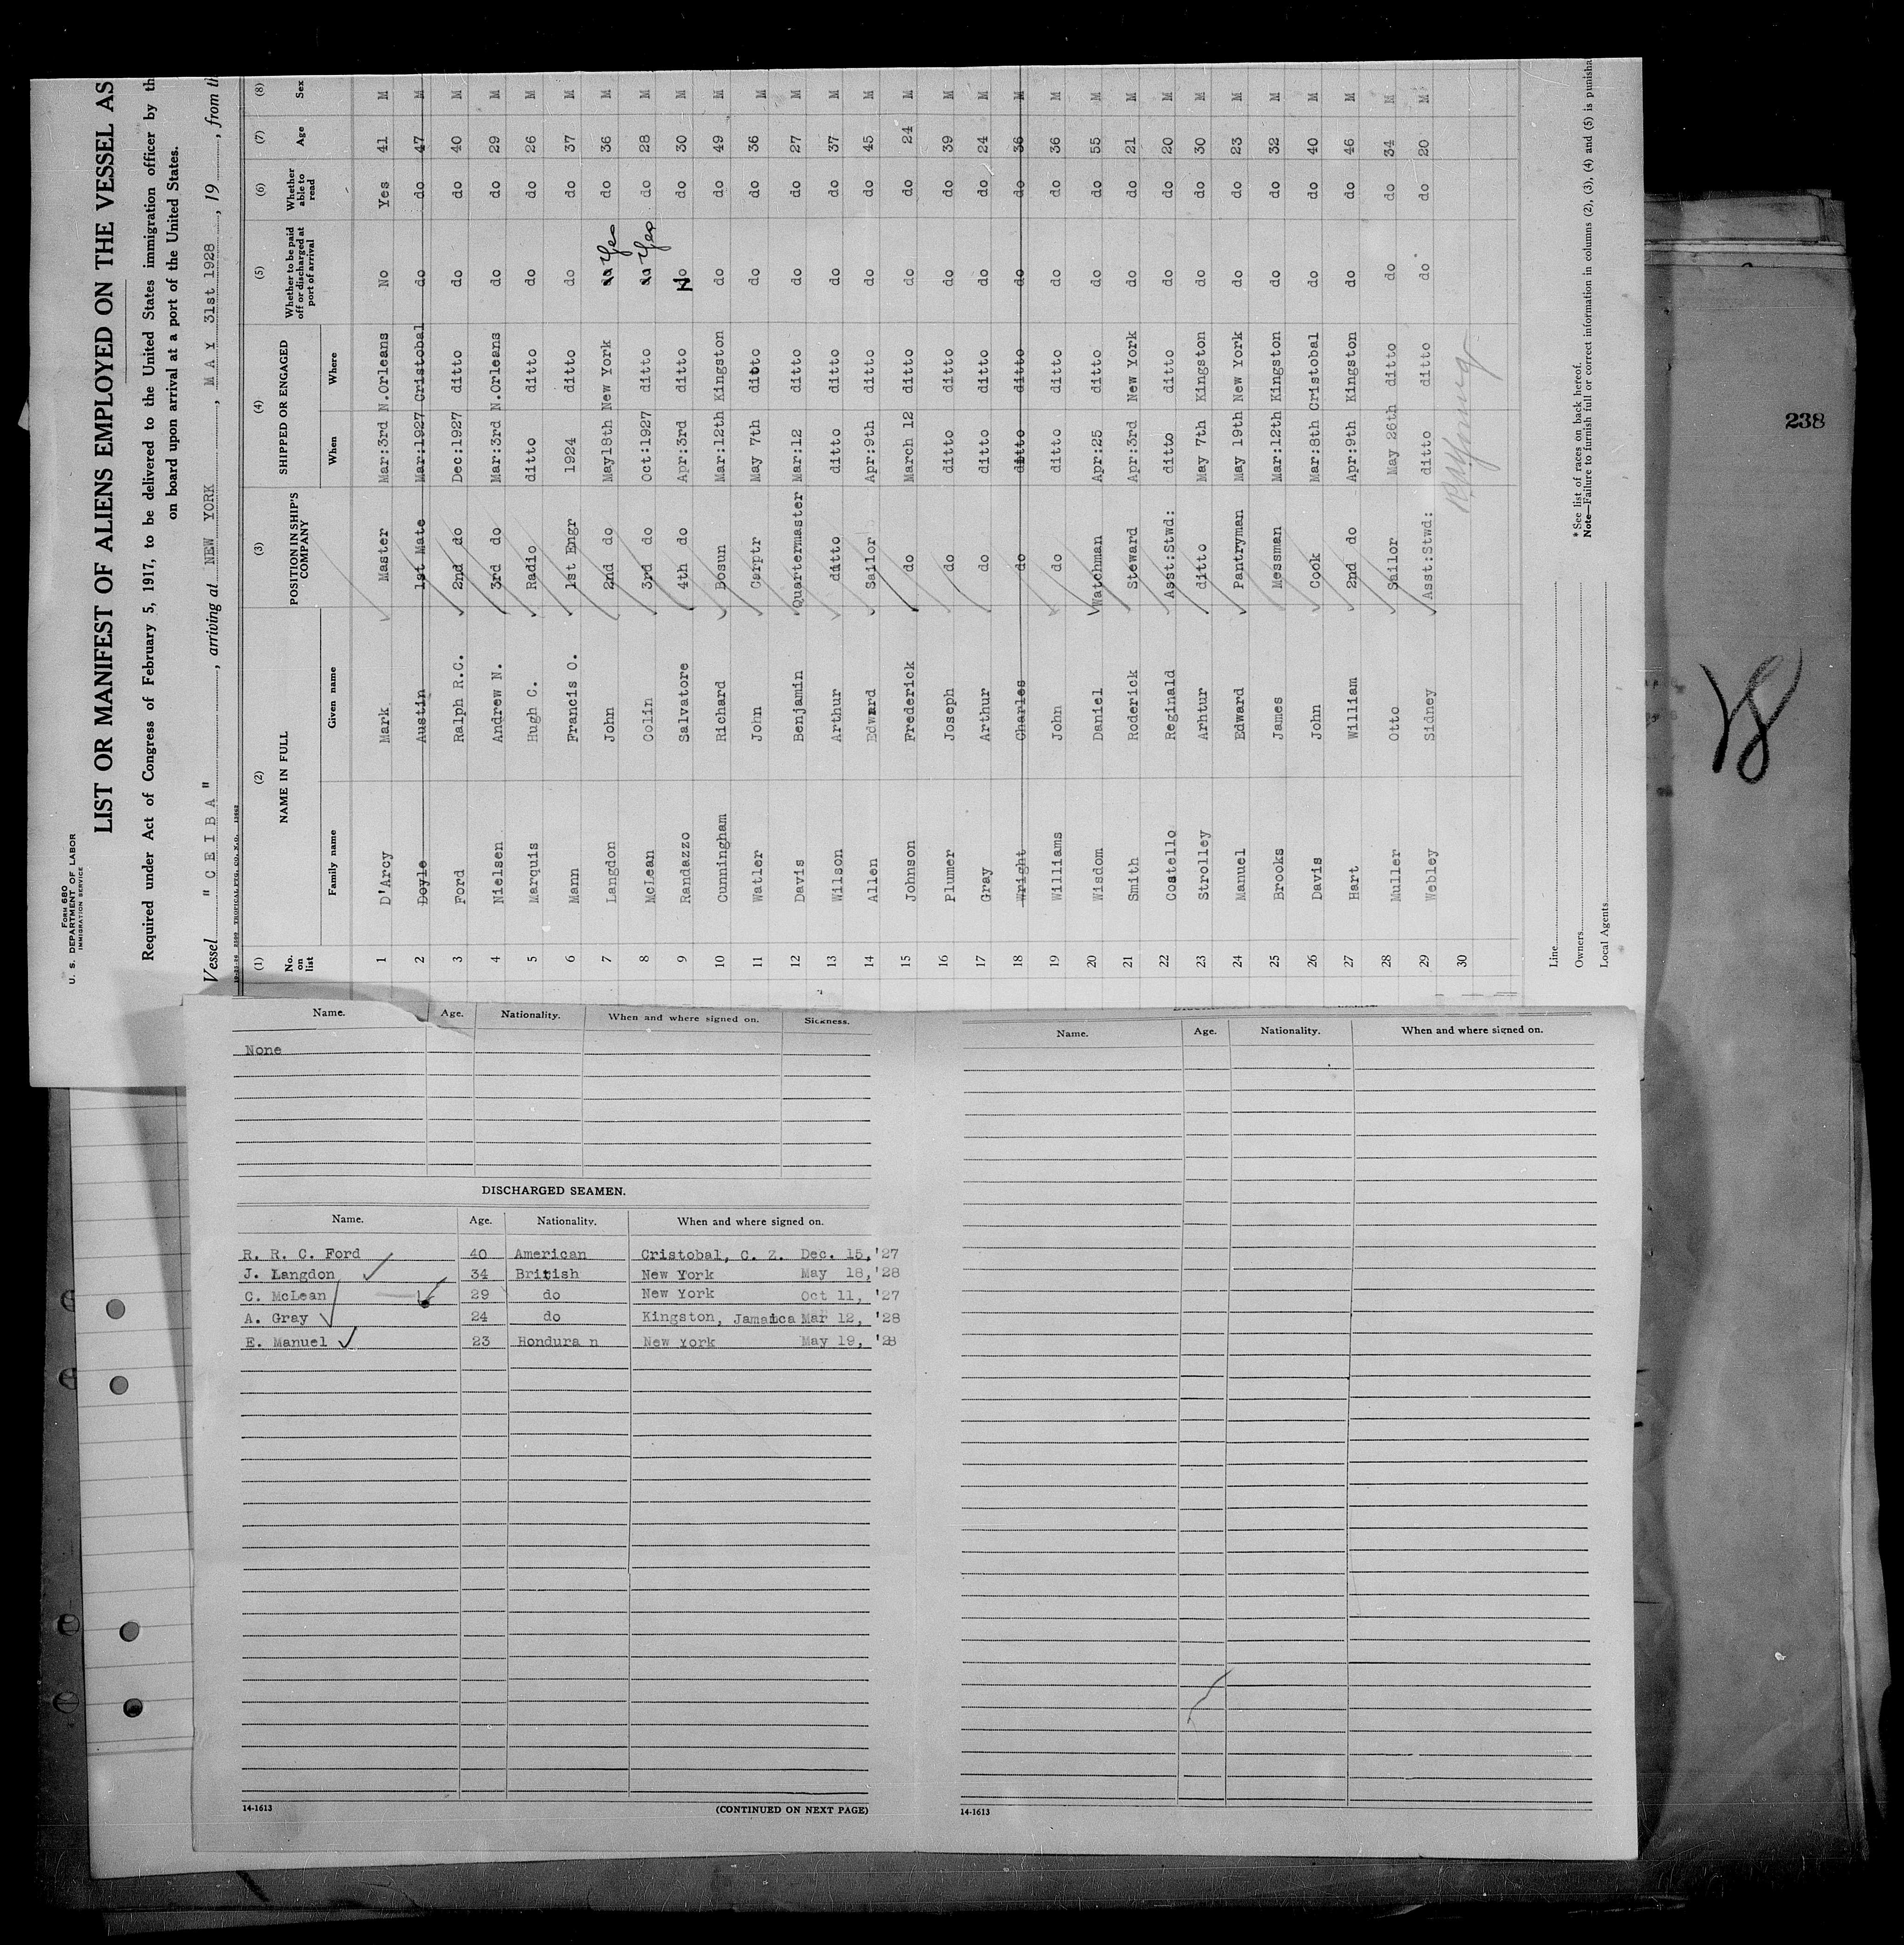 Form 680
U. S. DEPARTMENT OF LABOR
IMMIGRATION SERVICE
LIST OR MANIFEST OF ALIENS EMPLOYED ON THE VESSEL AS
Required under Act of Congress of February 5, 1917, to be delivered to the United States immigration officer by th
on board upon arrival at a port of the United States.
Vessel "CEIBA", arriving at NEW YORK, MAY 31st 1928, 19, from th
(1) (2) (3) (4) (5) (6) (7) (8)
No. on list NAME IN FULL POSITION IN SHIP'S COMPANY SHIPPED OR ENGAGED Whether to be paid off or discharged at port of arrival Whether able to read Age Sex
Family name Given name When Where
1 D'Arcy Mark Master Mar:3rd N.Orleans No Yes 41 M
2 Doyle Austin 1st Mate Mar:1927 Cristobal do do 47 M
3 Ford Ralph R.C. 2nd do Dec:1927 ditto do do 40 M
4 Nielsen Andrew N. 3rd do Mar:3rd N.Orleans do do 29 M
5 Marquis Hugh C. Radio ditto ditto do do 26 M
6 Mann Francis O. 1st Engr 1924 ditto do do 37 M
7 Langdon John 2nd do May18th New York do Yes do 36 M
8 McLean Colin 3rd do Oct:1927 ditto do Yes do 28 M
9 Randazzo Salvatore 4th do Apr:3rd ditto No do 30 M
10 Cunningham Richard Bosun Mar:12th Kingston do do 49 M
11 Watler John Carptr May 7th ditto do do 36 M
12 Davis Benjamin Quartermaster Mar:12 ditto do do 27 M
13 Wilson Arthur ditto ditto ditto do do 37 M
14 Allen Edward Sailor Apr:9th ditto do do 45 M
15 Johnson Frederick do March 12 ditto do do 24 M
16 Plumer Joseph do ditto ditto do do 39 M
17 Gray Arthur do ditto ditto do do 24 M
18 Wright Charles do ditto ditto do do 36 M
19 Williams John do ditto ditto do do 36 M
20 Wisdom Daniel Watchman Apr:25 ditto do do 55 M
21 Smith Roderick Steward Apr:3rd New York do do 21 M
22 Costello Reginald Asst:Stwd: ditto ditto do do 20 M
23 Strolley Arhtur ditto May 7th Kingston do do 30 M
24 Manuel Edward Pantryman May 19th New York do do 23 M
25 Brooks James Messman Mar:12th Kingston do do 32 M
26 Davis John Cook Mar:8th Cristobal do do 40 M
27 Hart William 2nd do Apr:9th Kingston do do 46 M
28 Muller Otto Sailor May 26th ditto do do 34 M
29 Webley Sidney Asst:Stwd: ditto ditto do do 20 M
30
Line
Owners
Local Agents
* See list of races on back hereof.
Note—Failure to furnish full or correct information in columns (2), (3), (4) and (5) is punisha
238
18
Name. Age. Nationality. When and where signed on. Sickness.
None
DISCHARGED SEAMEN.
Name. Age. Nationality. When and where signed on.
R. R. C. Ford 40 American Cristobal, C. Z. Dec. 15,'27
J. Langdon 34 British New York May 18,'28
C. McLean 29 do New York Oct 11, '27
A. Gray 24 do Kingston, Jamaica Mar 12, '28
E. Manuel 23 Hondura n New York May 19, '28
14-1613
(CONTINUED ON NEXT PAGE)
Name. Age. Nationality. When and where signed on.
14-1613